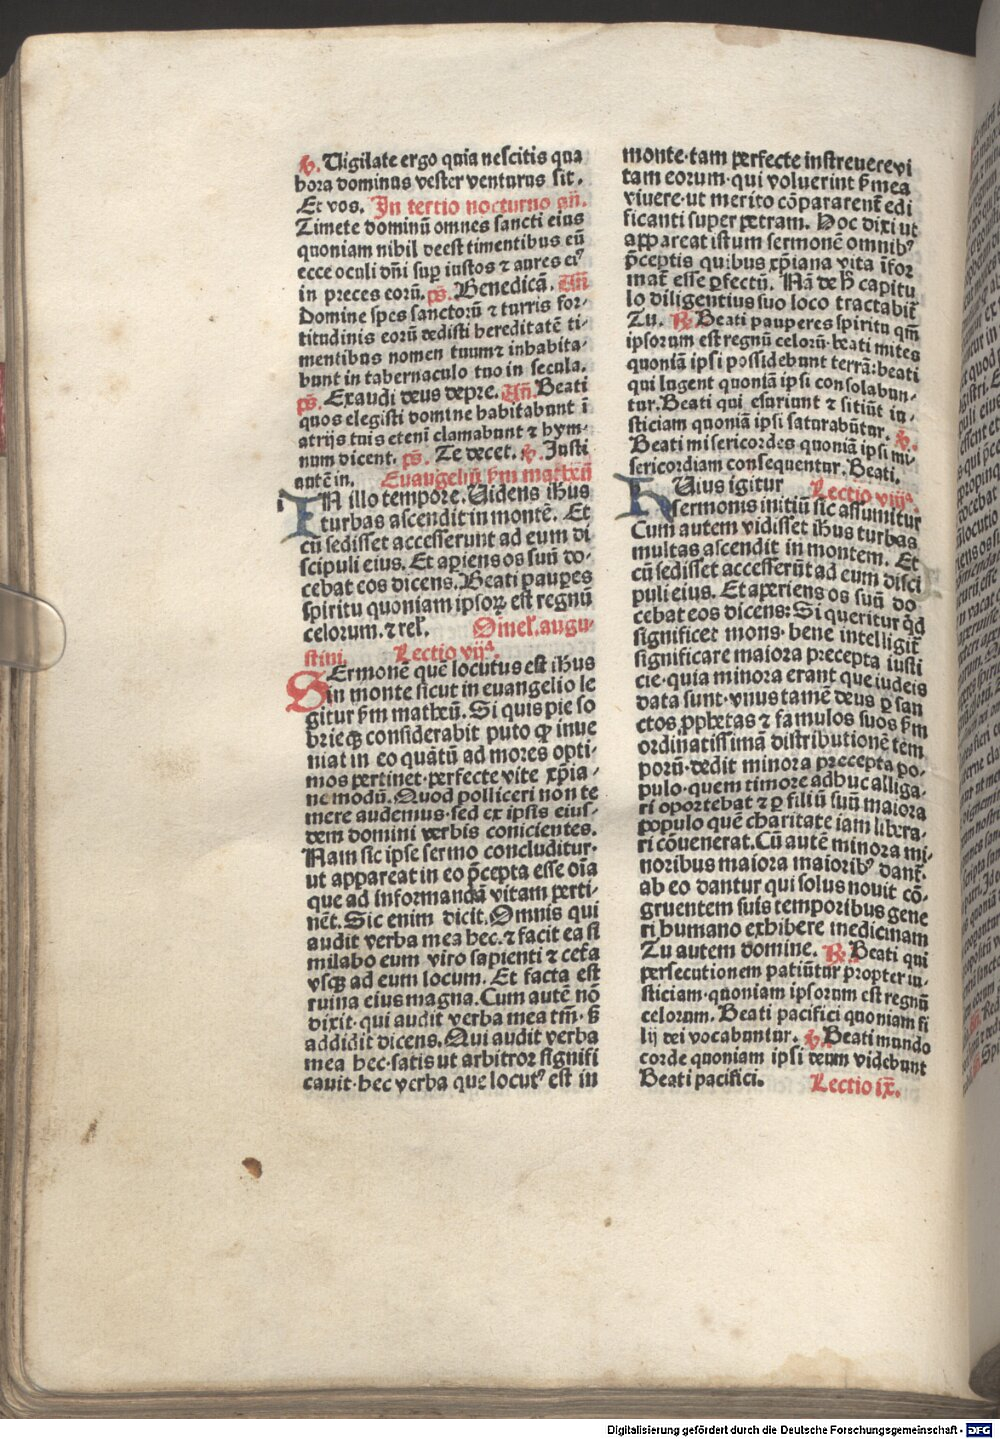 ℣. Uigilate ergo quia nescitis qua
hora dominus vester venturus sit.
Et vos. In tertio nocturno añ.
Timete dominū omnes sancti eius
quoniam nihil deest timentibus eū
ecce oculi dn̄i sup̄ iustos ⁊ aures ei⁹
in preces eorū. ps̄. Benedicā. Añ
Domine spes sanctorū ⁊ turris for-
titudinis eorū dedisti hereditatē ti-
mentibus nomen tuum⁊ inhabita-
bunt in tabernaculo tuo in secula.
ps̄. Exaudi deus depre. Añ. Beati
quos elegisti domine habitabunt ī
atrijs tuis etenī clamabunt ⁊ hym-
num dicent. ps̄. Te decet. ℣. Justi
autē in. Euangeliū ẜm matheū
IN illo tempore. Uidens ih̄us
turbas ascendit in montē. Et
cū sedisset accesserunt ad eum di
scipuli eius. Et aꝑiens os suū do-
cebat eos dicens. Beati pauꝑes
spiritu quoniam ipsoꝝ est regnū
celorum. ⁊ rel̄. Omel̄. augu-
stini. Lectio vijª.
SErmonē quē locutus est ih̄us
in monte sicut in euangelio le
gitur ẜm matheū. Si quis pie so
brieqꝫ considerabit puto qp̄ inue
niat in eo quātū ad mores opti-
mos pertinet·perfecte vite xp̄ia-
ne modū. Quod polliceri non te
mere audemus·sed ex ipsis eius-
dem domini verbis conicientes.
Nam sic ipse sermo concluditur·
ut appareat in eo p̄cepta esse oīa
que ad informandā vitam perti-
nēt. Sic enim dicit. Omnis qui
audit verba mea hec·⁊ facit ea si
milabo eum viro sapienti ⁊ cetᷓa
vsqꝫ ad eum locum. Et facta est
ruina eius magna. Cum autē nō
dixit· qui audit verba mea tm̄· sꝫ
addidit dicens. Qui audit verba
mea hec·satis ut arbitror signifi
cauit·hec verba que locut⁹ est in
monte·tam perfecte instruere vi
tam eorum·qui voluerint p̄mea
viuere·ut merito cōpararent̄ edi
ficanti super petram. Hoc dixi ut
appareat istum sermonē omnib⁹
p̄ceptis quibus xp̄iana vita īfor
mat̄ esse ꝑfectū. Nā de h̄ capitu
lo diligentius suo loco tractabit̄
Tu. ℟. Beati pauperes spiritu qm̄
ipsorum est regnū celorū·beati mites
quoniā ipsi possidebunt terrā:beati
qui lugent quoniā ipsi consolabun-
tur. Beati qui esuriunt ⁊ sitiūt iu-
sticiam quoniā ipsi saturabūtur. ℣.
Beati misericordes quoniā ipsi mi-
sericordiam consequentur. Beati.
HUius igitur Lectio viijª.
sermonis initiū sic assumitur
Cum autem vidisset ih̄us turbas
multas ascendit in montem. Et
cū sedisset accesserūt ad eum disci
puli eius. Et aperiens os suū do
cebat eos dicens: Si queritur qd̄
significet mons· bene intelligit̄
significare maiora precepta iusti
cie·quia minora erant que iudeis
data sunt·vnus tamē deus ꝑ san
ctos ꝓphetas ⁊ famulos suos ẜm
ordinatissimā distributionē tem
porū·dedit minora precepta po-
pulo·quem timore adhuc alliga-
ri oportebat ⁊ ꝑ filiū suū maiora
populo quē charitate iam libera-
ri cōuenerat. Cū autē minora mi-
noribus maiora maiorib⁹ dant̄·
ab eo dantur qui solus nouit cō-
gruentem suis temporibus gene
ri humano exhibere medicinam
Tu autem domine. ℟. Beati qui
persecutionem patiūtur propter iu-
sticiam·quoniam ipsorum est regnū
celorum. Beati pacifici quoniam fi
lij dei vocabuntur. ℣. Beati mundo
corde quoniam ipsi deum videbunt
Beati pacifici. Lectio ix̄.
Digitalisierung gefördert durch die Deutsche Forschungsgemeinschaft - DFG